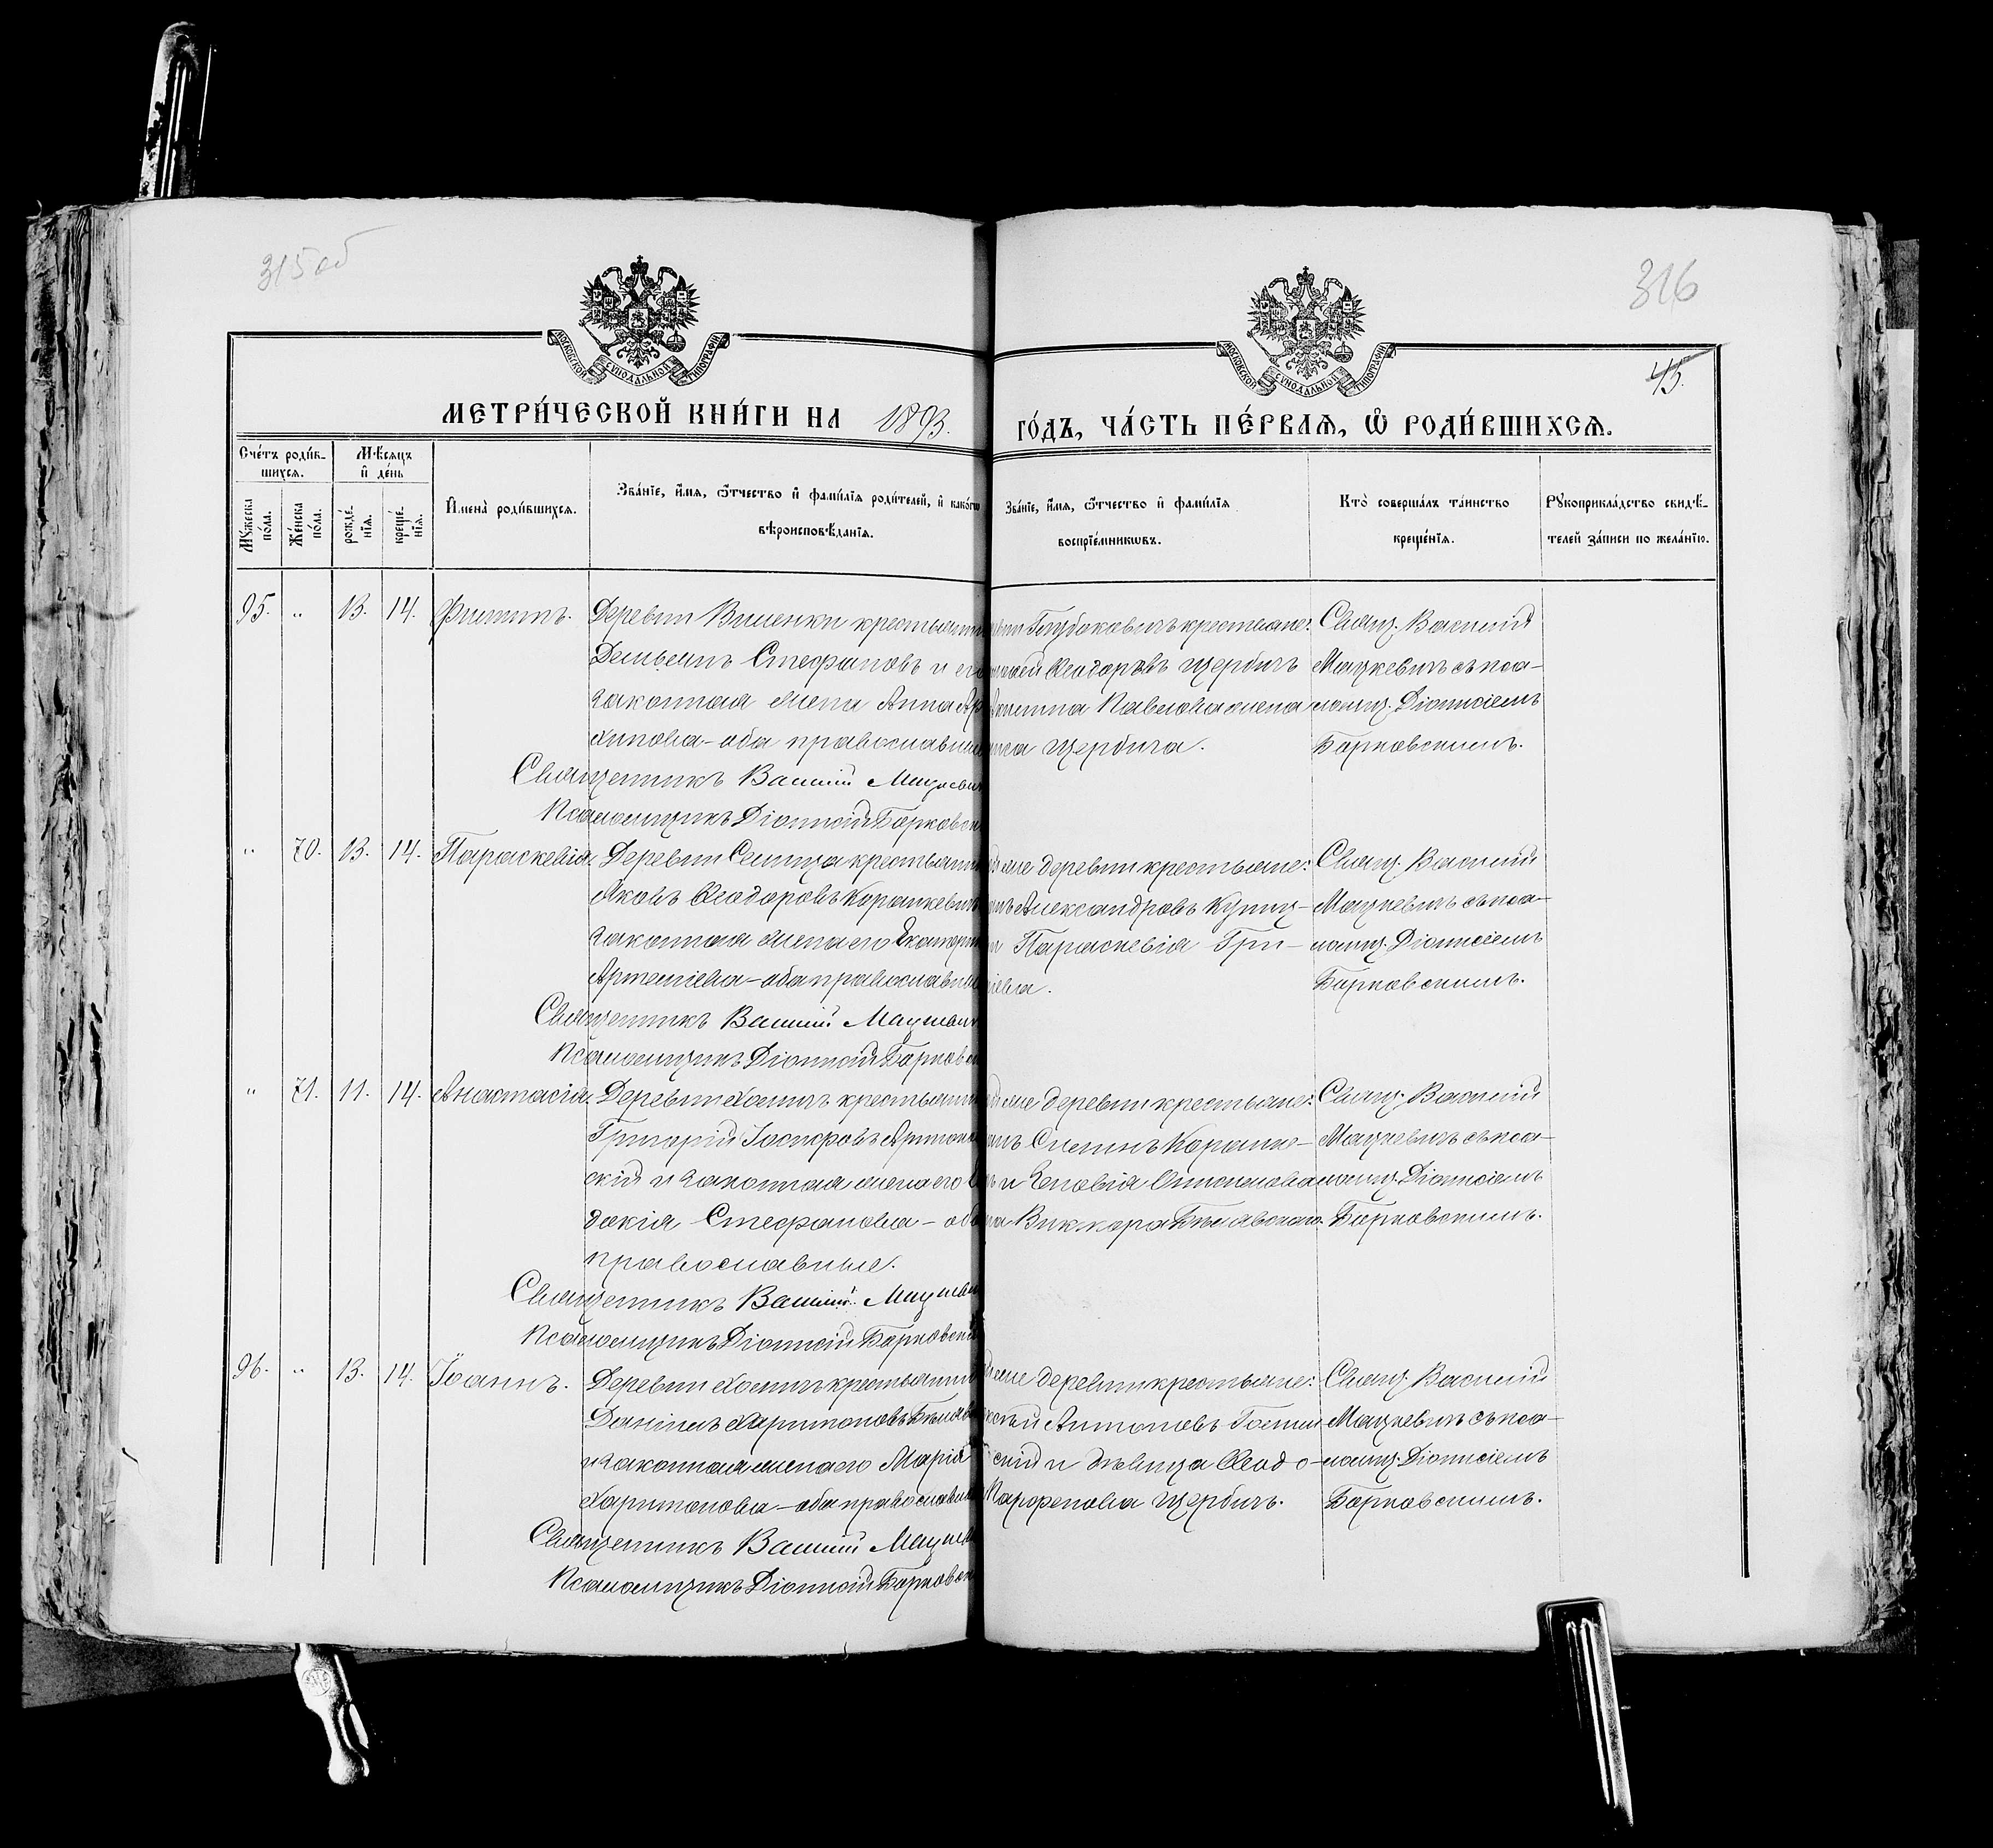 315 об
316
МОСКОВСКОЙ СУНОДАЛЬНОЙ ТИПОГРАФІИ
МОСКОВСКОЙ СУНОДАЛЬНОЙ ТИПОГРАФІИ
45.
МЕТРИ́ЧЕСКОЙ КНИ́ГИ НА 1893.
ГО́ДЪ, ЧА́СТЬ ПЕ́РВАѦ, Ѡ҆ РОДИ́ВШИХСѦ.
Сче́тъ роди́в-
шихсѧ.
Мѣ́сѧцъ
и҆ де́нь
Мꙋ́жеска
по́ла.
Же́нска
по́ла.
рожде́-
нїѧ.
креще́-
нїѧ.
И҆мена̀ роди́вшихсѧ.
Зва́нїе, и҆́мѧ, ѻ҆́тчество и҆ фами́лїѧ роди́телей, и҆ како́гѡ
вѣроисповѣ́данїѧ.
Зва́нїе, и҆́мѧ, ѻ҆́тчество и҆ фами́лїѧ
воспрїе́мникѡвъ.
Кто̀ соверша́лъ та́инство
креще́нїѧ.
Рꙋкоприкла́дство свидѣ́-
телей за́писи по жела́нїю.
95. " 13. 14. Филиппъ. Деревни Вишенки крестьянин
Демьянъ Стефановъ и его
законная жена Анна Ар
хипова - оба православные
Священникъ Василій Мацкевич
Псаломщикъ Діонисій Барковск
Глубоковичъ крестьяне:
Ѳеодоровъ Щербичъ
Павлова жена
Щербича.
Свящ. Василій
Мацкевичъ съ пса-
ломщ. Діонисіемъ
Барковскимъ.
" 70. 13. 14. Параскевія. Деревни Селища крестьянин
Яковъ Ѳеодоровъ Корашкевичъ
законная жена его Екатери
Артеміева - оба православные
Священникъ Василій Мацкевич
Псаломщикъ Діонисій Барковск
деревни крестьяне:
Александровъ Купц-
Параскевія Гри-
Свящ. Василій
Мацкевичъ съ пса-
ломщ. Діонисіемъ
Барковскимъ.
" 71. 11. 14. Анастасія. Деревни Холмъ крестьянин
Григорій Іосифовъ
скій и законная жена его
докія Стефанова - оба
православные.
Священникъ Василій Мацкевич
Псаломщикъ Діонисій Барковскій
деревни крестьяне:
Корашке-
и Зеновія жена
Виктора Бѣлявскаго.
Свящ. Василій
Мацкевичъ съ пса-
ломщ. Діонисіемъ
Барковскимъ.
96. " 13. 14. Іоаннъ. Деревни Холмъ крестьянин
Даніилъ Харитоновъ Бѣляв
и законная жена его Марія
Харитонова - оба православные
Священникъ Василій Мацкев
Псаломщикъ Діонисій Барковск
деревни крестьяне:
Антоновъ
скій и дѣвица Ѳеодо-
Парфенова Щербичъ.
Свящ. Василій
Мацкевичъ съ пса-
ломщ. Діонисіемъ
Барковскимъ.